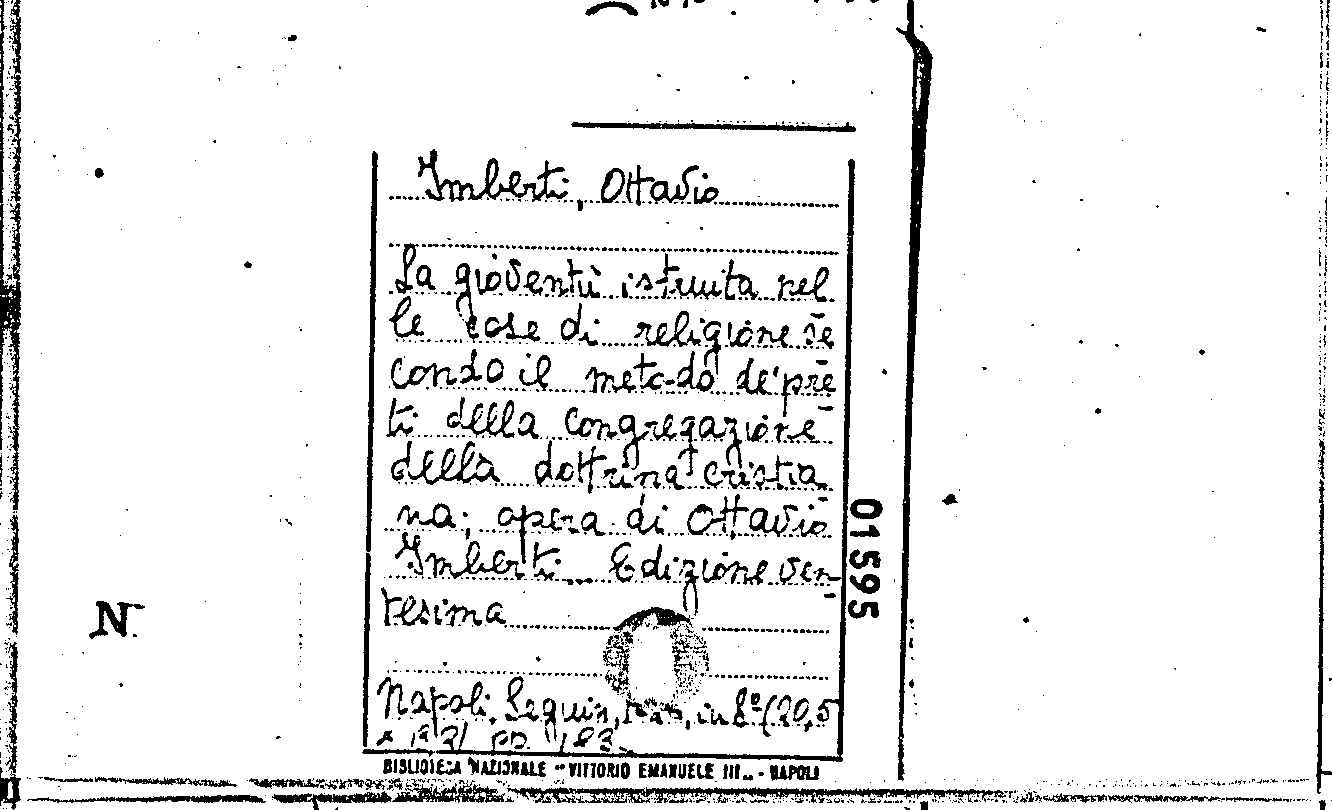 Imberti, Ottavio
La gioventù istruita nel
le case di religione se
condo il metodo de' pre
ti della congregazione
della dottrina cristia
na; opera di Ottavio
Imberti... Edizione ven-
tesima
Napoli, Seguin, in 8º (20,5
pp. 183
BIBLIOTECA NAZIONALE "VITTORIO EMANUELE III" - NAPOLI
01595
N